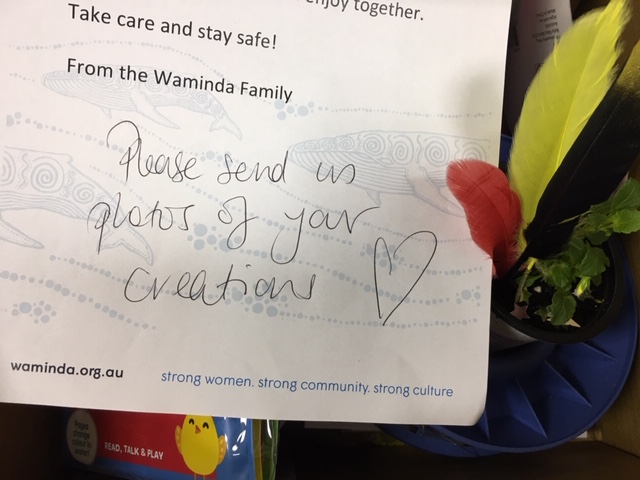 enjoy together.
Take care and stay safe!
From the Waminda Family
Please send us
photos of your
creations
waminda.org.au
strong women. strong community. strong culture
Pages
change
colour in
water!
READ, TALK & PLAY